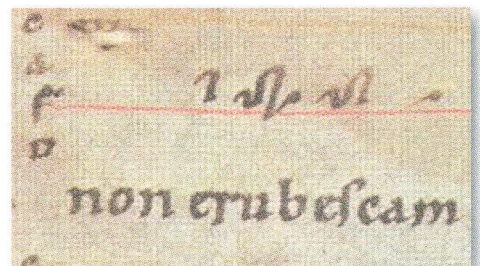 e
a
F
D
non erubescam